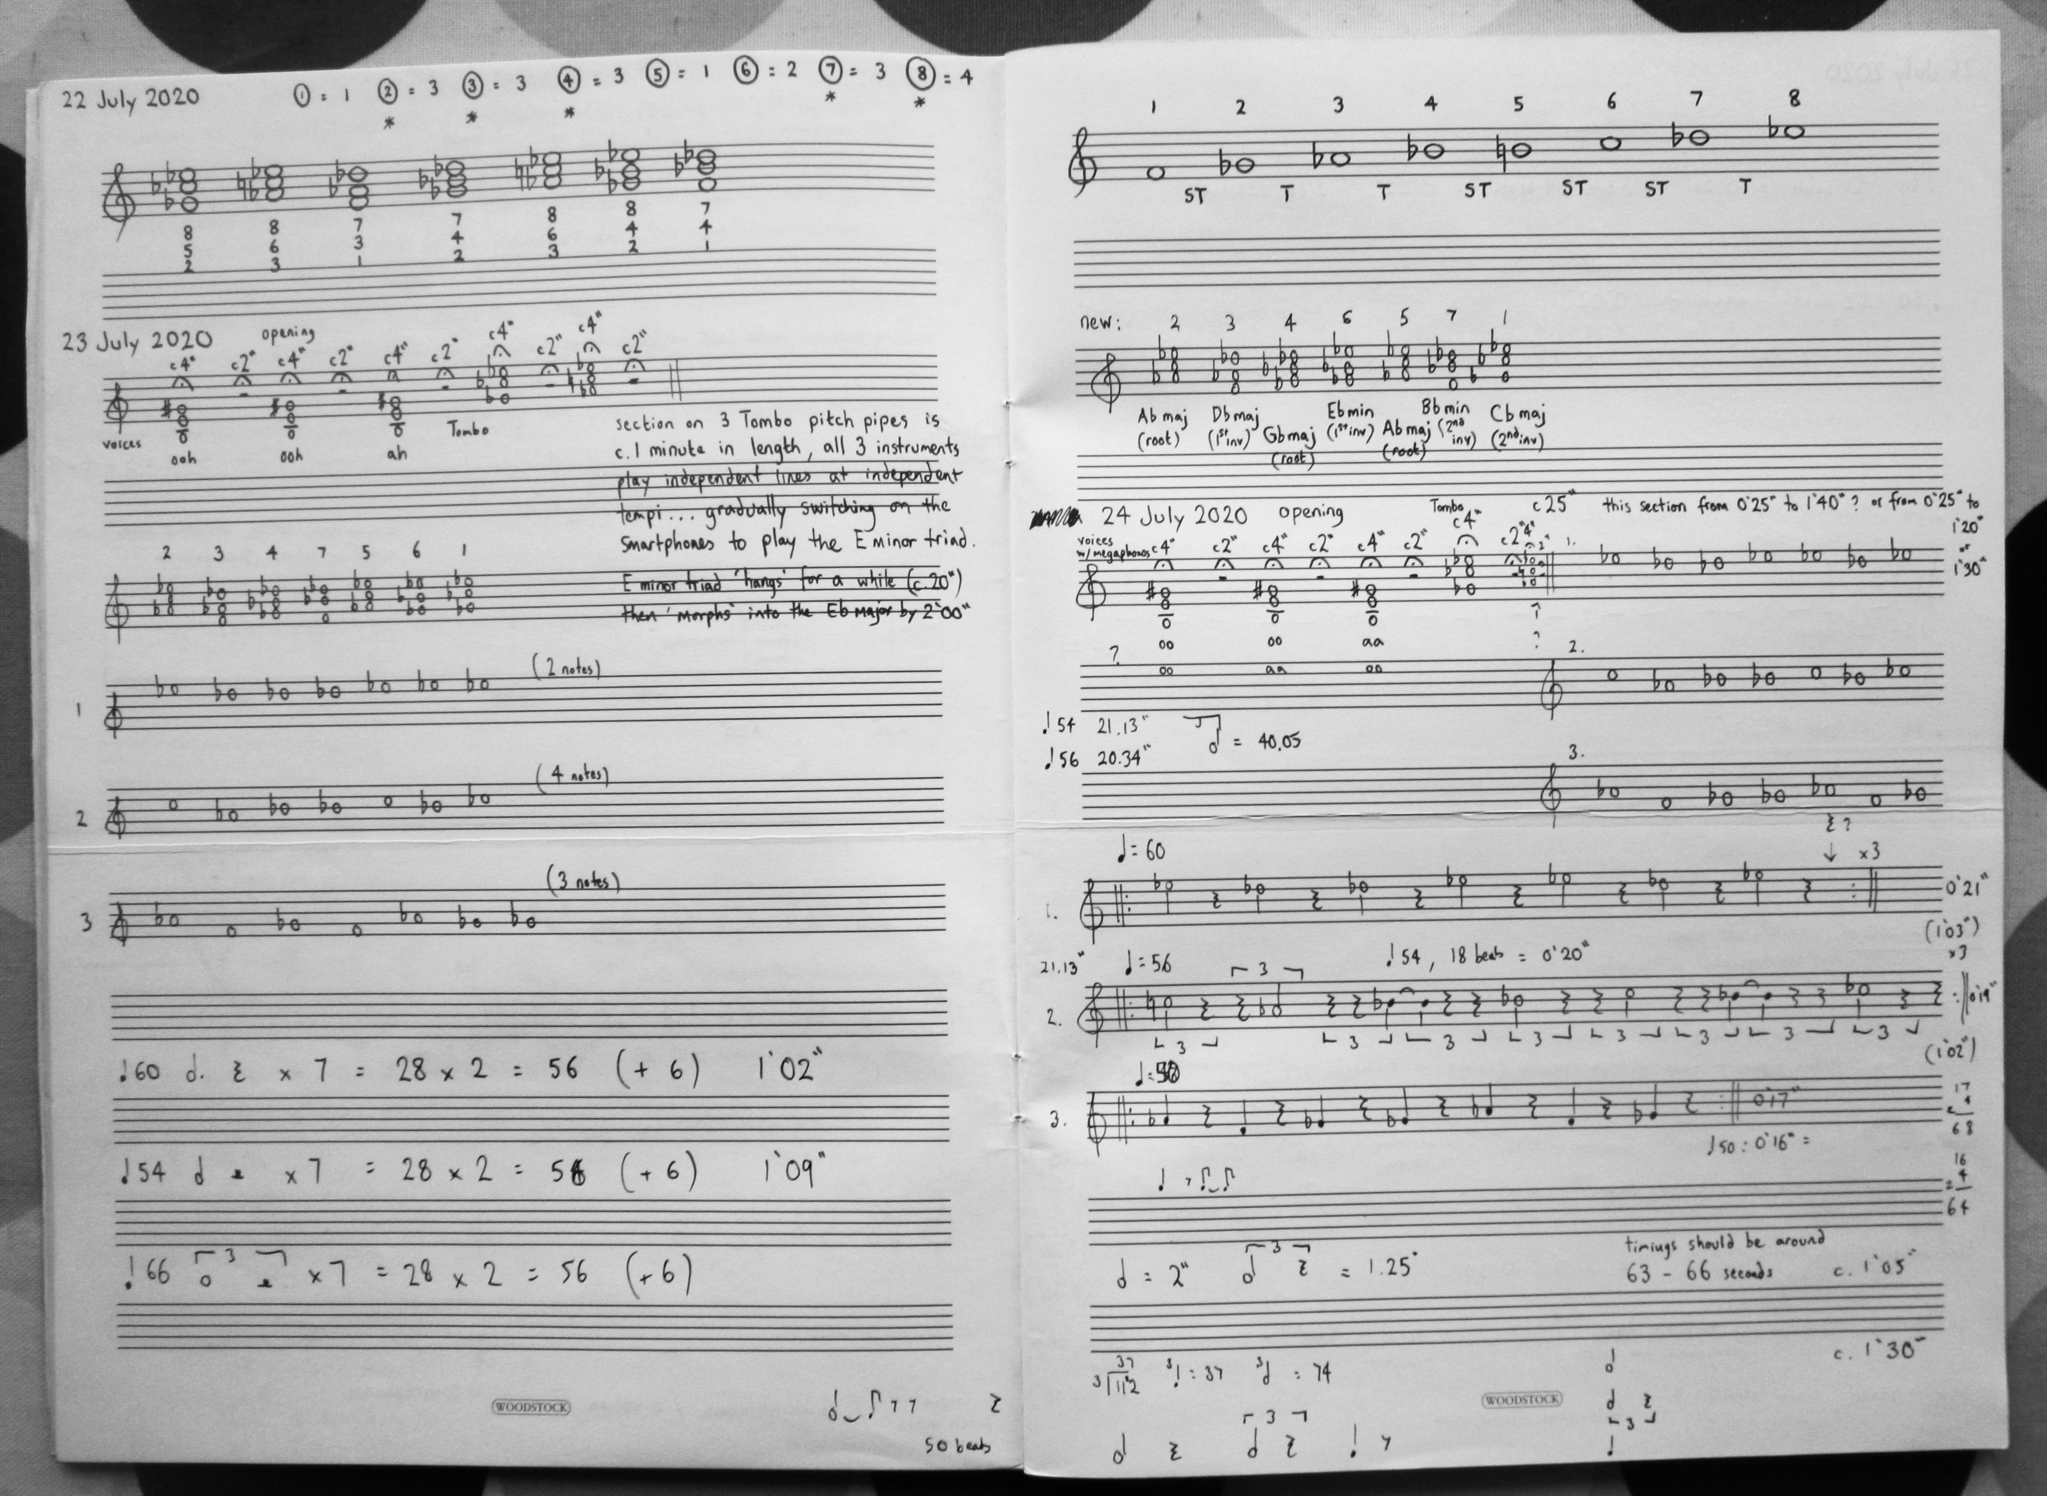 22 July 2020 ① = 1 ② = 3 ③ = 3 ④ = 3 ⑤ = 1 ⑥ = 2 ⑦ = 3 ⑧ = 4
* * * * *
8 8 7 7 8 8 7
5 6 3 4 6 4 4
2 3 1 2 3 2 1
23 July 2020 opening
c4" c2" c4" c2" c4" c2" c4" c2" c4" c2"
voices ooh ooh ah Tombo
section on 3 Tombo pitch pipes is
c. 1 minute in length, all 3 instruments
play independent lines at independent
tempi... gradually switching on the
smartphones to play the E minor triad.
E minor triad 'hangs' for a while (c. 20")
then 'morphs' into the Eb Major by 2'00"
2 3 4 7 5 6 1
1 (2 notes)
2 (4 notes)
3 (3 notes)
♩60 𝅗𝅥. 𝄽 x 7 = 28 x 2 = 56 (+ 6) 1'02"
♩54 x 7 = 28 x 2 = 56 (+ 6) 1'09"
♩66 3 x 7 = 28 x 2 = 56 (+6)
WOODSTOCK
50 beats
1 2 3 4 5 6 7 8
ST T T ST ST ST T
new: 2 3 4 6 5 7 1
Ab maj (root)
Db maj (1st inv)
Gb maj (root)
Eb min (1st inv)
Ab maj (root)
Bb min (2nd inv)
Cb maj (2nd inv)
24 July 2020 opening
Tombo
c 25" this section from 0'25" to 1'40"? or from 0'25" to
1'20"
or
1'30"
voices
w/ megaphones c4" c2" c4" c2" c4" c2" c4" c2" 4" 2"
1.
oo oo aa ?
? oo aa oo ?
2.
♩54 21.13" 3 = 40.05
♩56 20.34"
3.
𝄽 ?
♩= 60 ↓ x3
1. 0'21"
(1'03")
x3
21.13" ♩= 56 3 ♩54, 18 beats = 0'20"
2. 0'19"
3 3 3 3 3 3 3
(1'02")
3. 0'17"
17
4
68
♩50 : 0'16" =
16
4
64
timings should be around
63 - 66 seconds c. 1'05"
𝅗𝅥 = 2" 3 = 1.25"
c. 1'30"
37
3 112
3 ♩ : 37 3 𝅗𝅥 : 74
WOODSTOCK
3
3